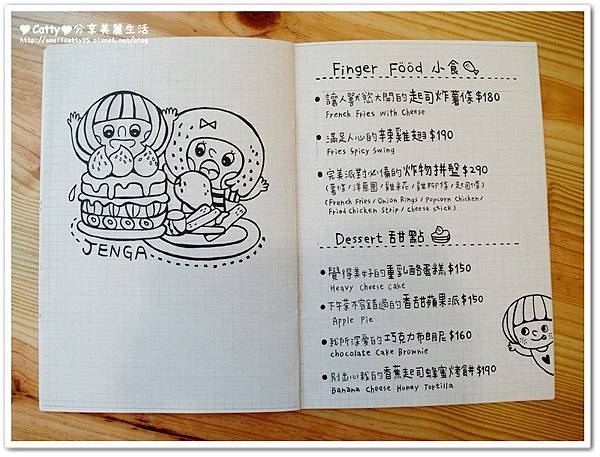 ♥Catty♥分享美麗生活
http://smellcatty25.pixnet.net/blog
JENGA
Finger Food 小食
讓人獸慾大開的起司炸薯條$180
French Fries with Cheese
滿足人心的辣雞翅$190
Fries Spicy Swing
完美派對必備的炸物拼盤$290
(薯條/洋蔥圈/雞米花/雞柳條/起司條)
(French Fries/Onion Rings/Popcorn Chicken/
Fried chicken strip/cheese stick)
Dessert 甜點
覺得美好的重乳酪蛋糕$150
Heavy cheese cake
下午茶不容錯過的香甜蘋果派$150
Apple Pie
我所深愛的巧克力布朗尼$160
chocolate Cake Brownie
別出心裁的香蕉起司蜂蜜烤餅$190
Banana Cheese Honey Tortilla